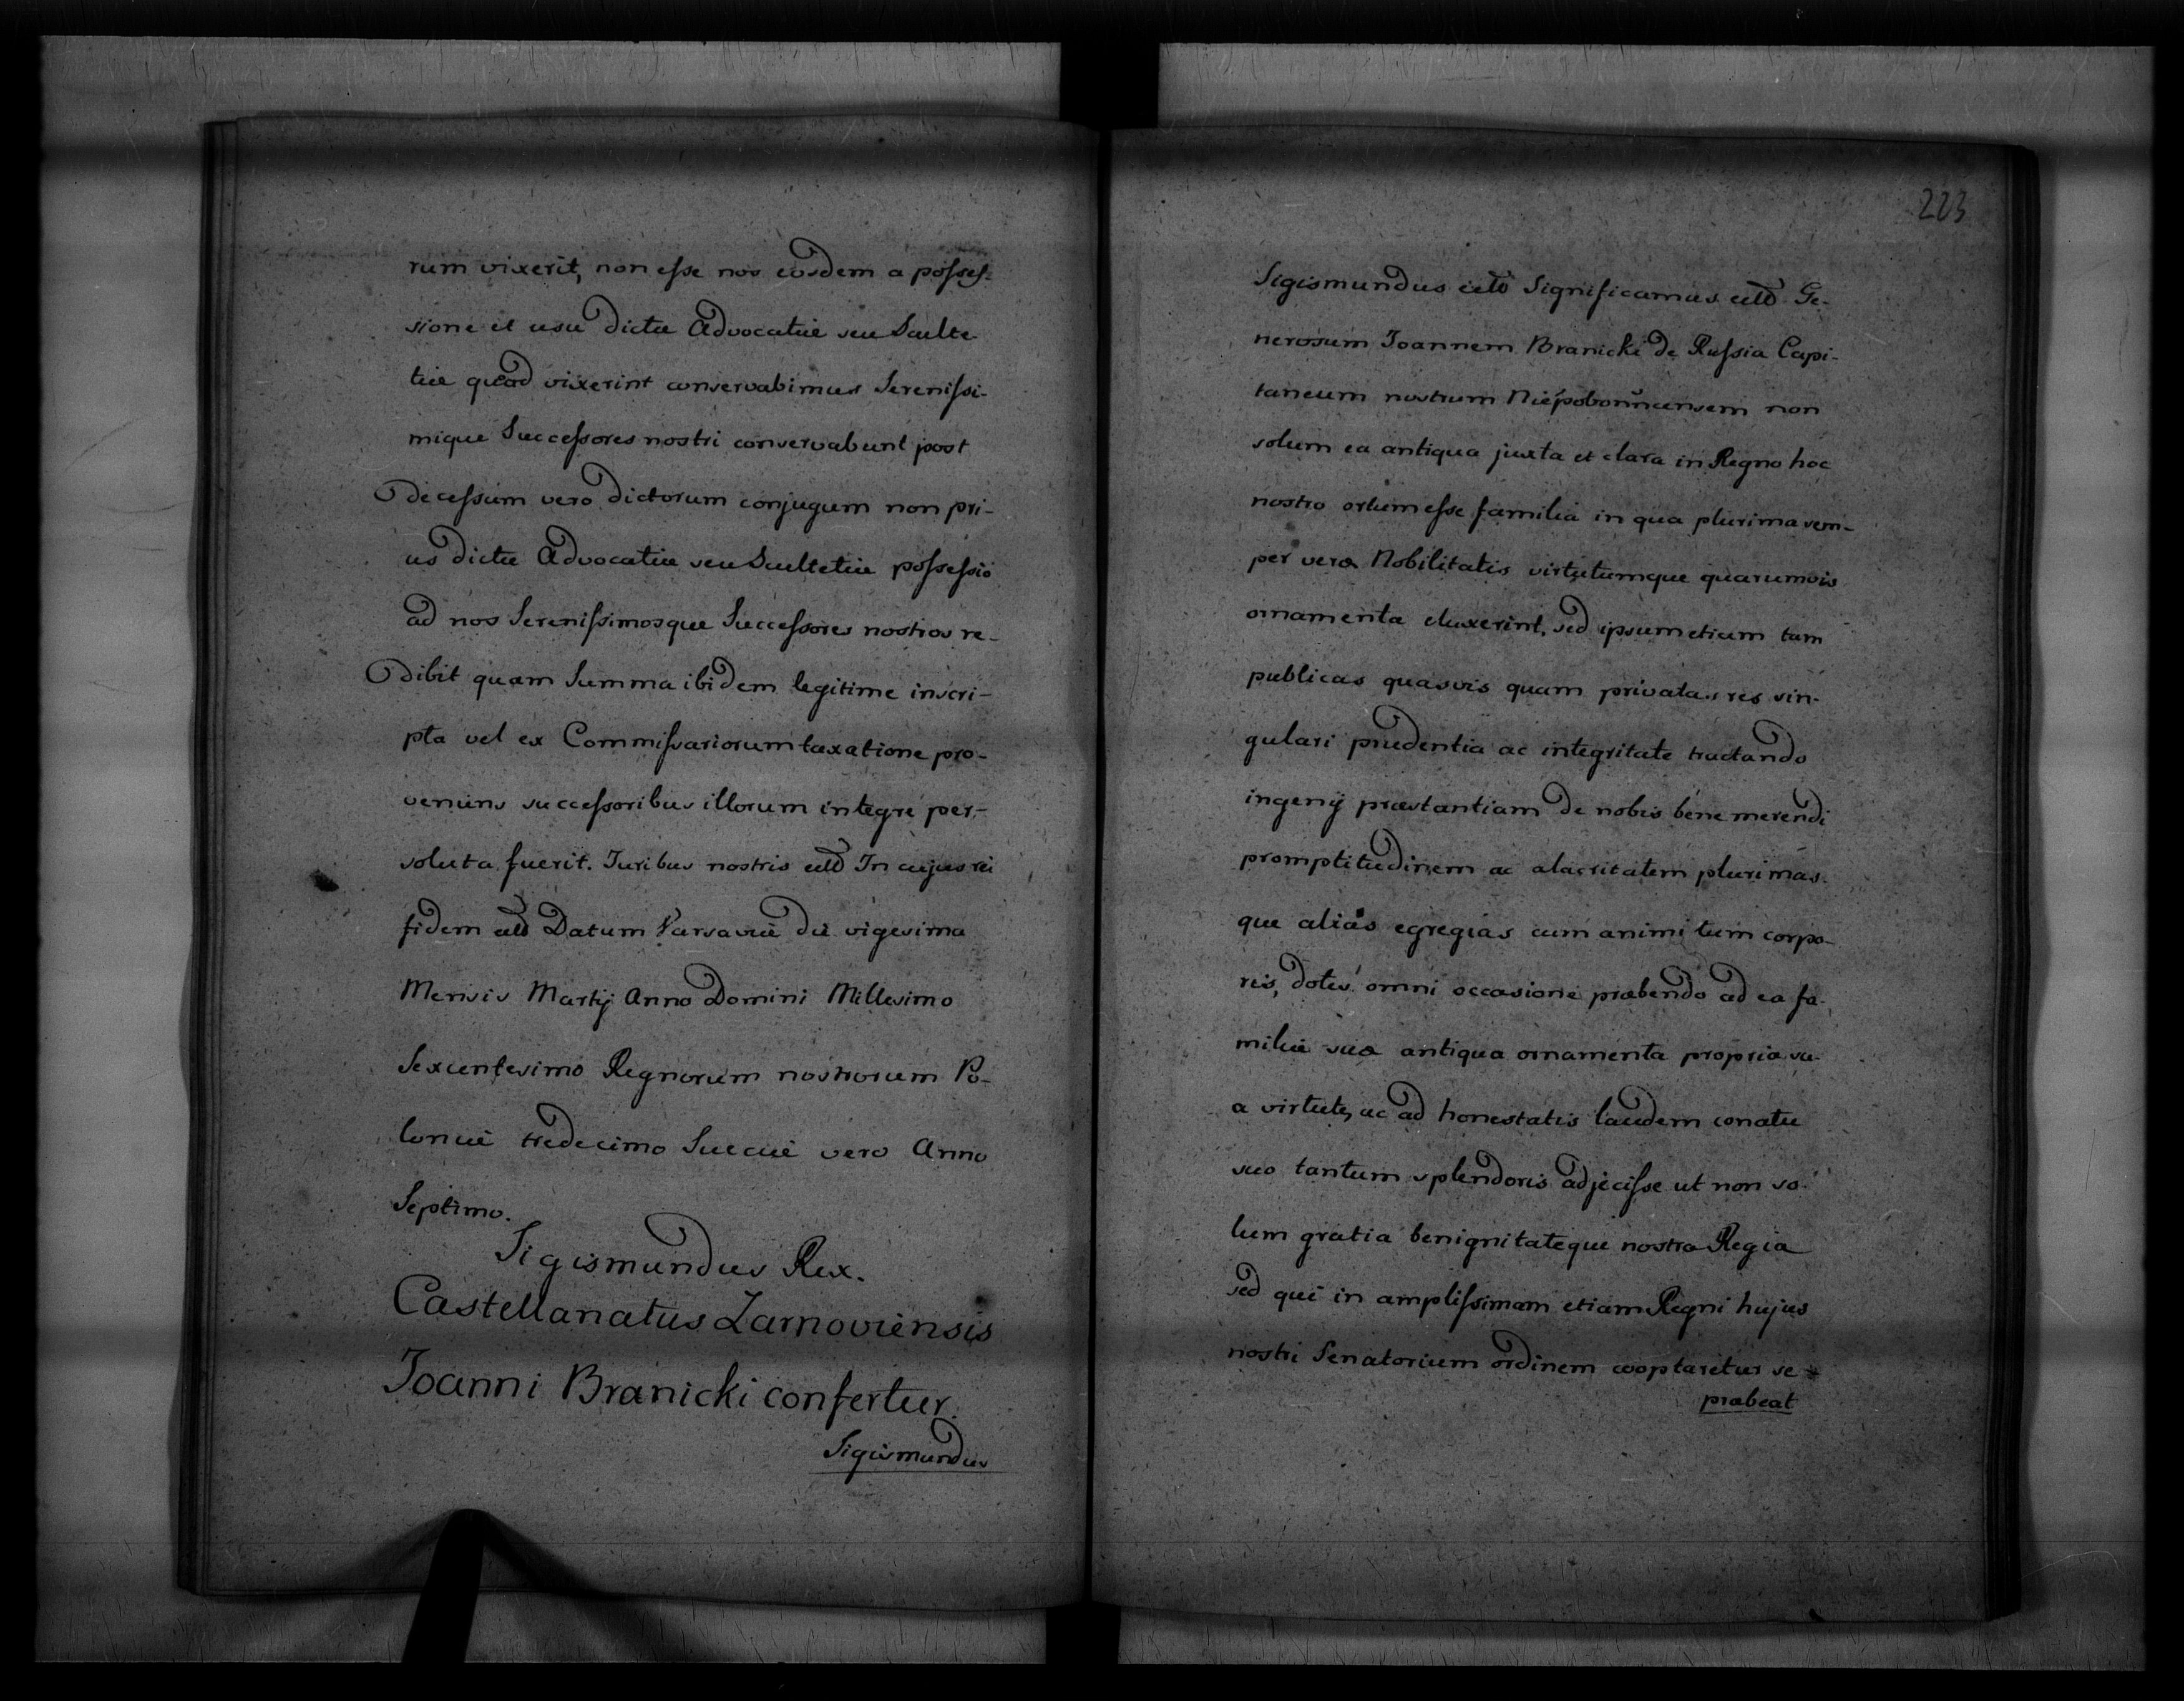 rum vixerit, non esse nos eosdem a posses-
sione et usu dictæ Advocatiæ seu Sculte-
tiæ quoad vixerint conservabimus Serenissi-
mique Successores nostri conservabunt post
decessum vero dictorum conjugum non pri-
us dictæ Advocatiæ seu Scultetiæ possessio
ad nos Serenissimosque Successores nostros re-
dibit quam Summa ibidem legitime inscri-
pta vel ex Commissariorum taxatione pro-
veniens successoribus illorum integre per-
soluta fuerit. Juribus nostris etto In cujus rei
fidem etto Datum Varsaviæ die vigesima
Mensis Martij Anno Domini Millesimo
Sexcentesimo Regnorum nostrorum Po-
loniæ tredecimo Sueciæ vero Anno
Septimo.
Sigismundus Rex.
Castellanatus Zarnoviensis
Joanni Branicki confertur.
Sigismundus
223
Sigismundus etto Significamus etto Ge-
nerosum Joannem Branicki de Russia Capi-
taneum nostrum non
solum ea antiqua juxta et clara in Regno hoc
nostro ortum esse familia in qua plurima sem-
per veræ Nobilitatis virtutumque quarumvis
ornamenta eluxerint, sed ipsum etiam tam
publicas quasvis quam privatas res sin-
gulari prudentia ac integritate tractando
ingenij præstantiam de nobis bene merendi
promptitudinem ac alacritatem plurimas-
que alias egregias cum animi tum corpo-
ris, dotes omni occasione præbendo ad ea fa-
miliæ suæ antiqua ornamenta propria su-
a virtute, ac ad honestatis laudem conatu
suo tantum splendoris adjecisse ut non so-
lum gratia benignitateque nostra Regia
sed qui in amplissimam etiam Regni hujus
nostri Senatorium ordinem cooptaretur se
præbeat